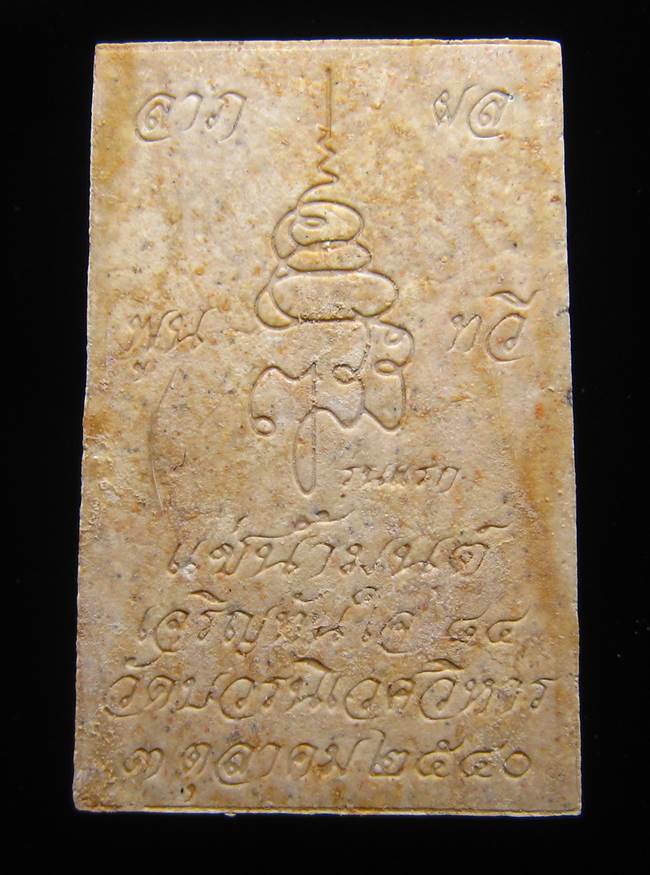 ลาภ ผล
พูน ทวี
รุ่นแรก
แช่น้ำมนต์
เจริญทันใจ ๘๔
วัดบวรนิเวศวิหาร
๓ ตุลาคม ๒๕๔๐